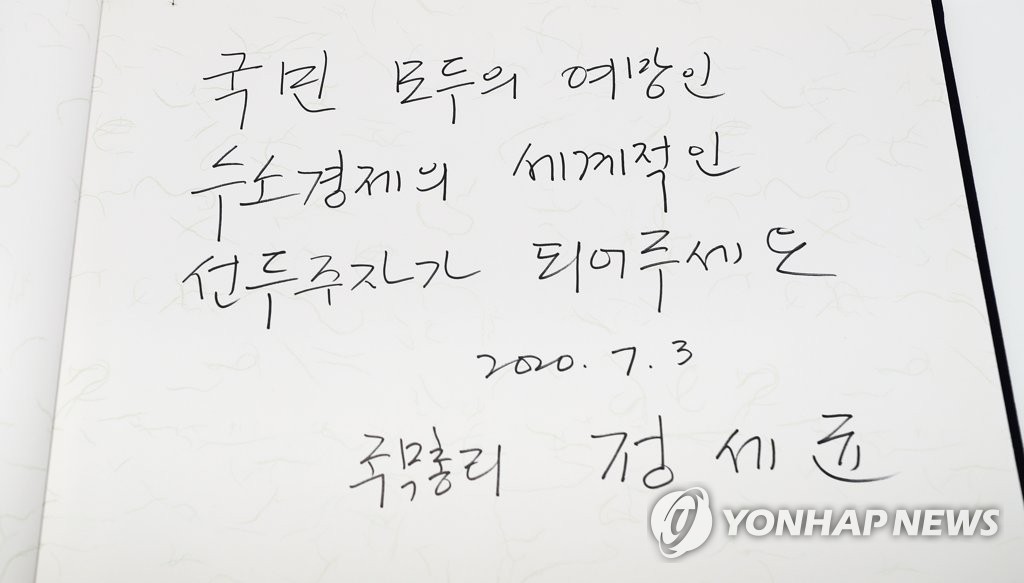 국민 모두의 여망인
수소경제의 세계적인
선두주자가 되어주세요
2020. 7. 3
국무총리 정세균
YONHAP NEWS